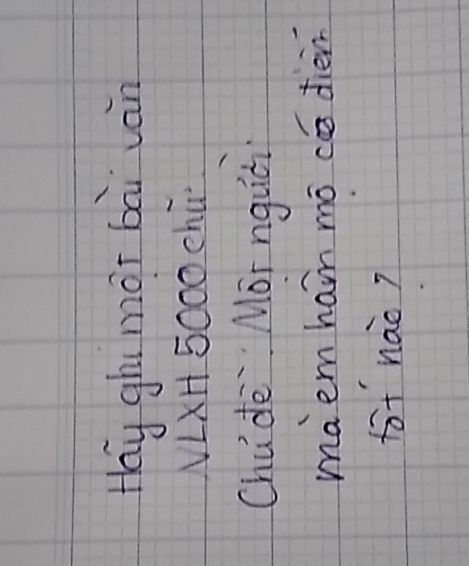 Hãy ghi một bài văn
NLXH 5000 chữ.
Chủ đề: Một người
mà em hâm mộ có điểm
tốt nào?